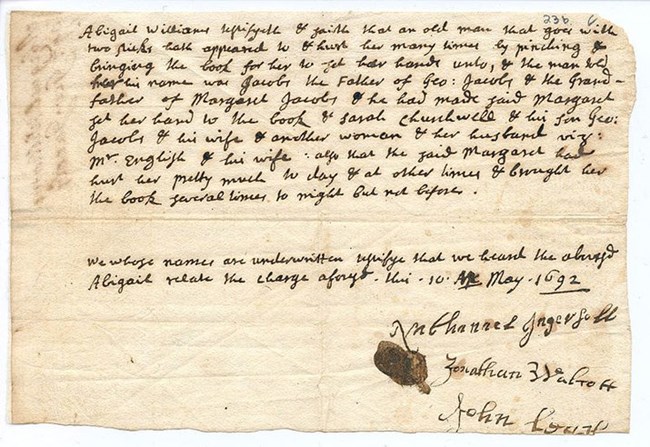 236
Abigail Williams testifyeth & saith that an old man that goes with
two sticks hath appeared to & hurt her many times by pinching &
bringing the book for her to set her hands unto, & the man told
her his name was Jacobs the Father of Geo: Jacobs & the Grand-
father of Margaret Jacobs & he had made said Margaret
set her hand to the book & Sarah Churchwell & his son Geo:
Jacobs & his wife & another woman & her husband viz:
Mr. English & his wife : also that the said Margaret had
hurt her pretty much to day & at other times & brought her
the book several times to night but not before.
we whose names are underwritten testifye that we heard the abovesd
Abigail relate the charge aforesd this 10 May 1692
Nathaniel Ingersoll
Jonathan Walcott
John